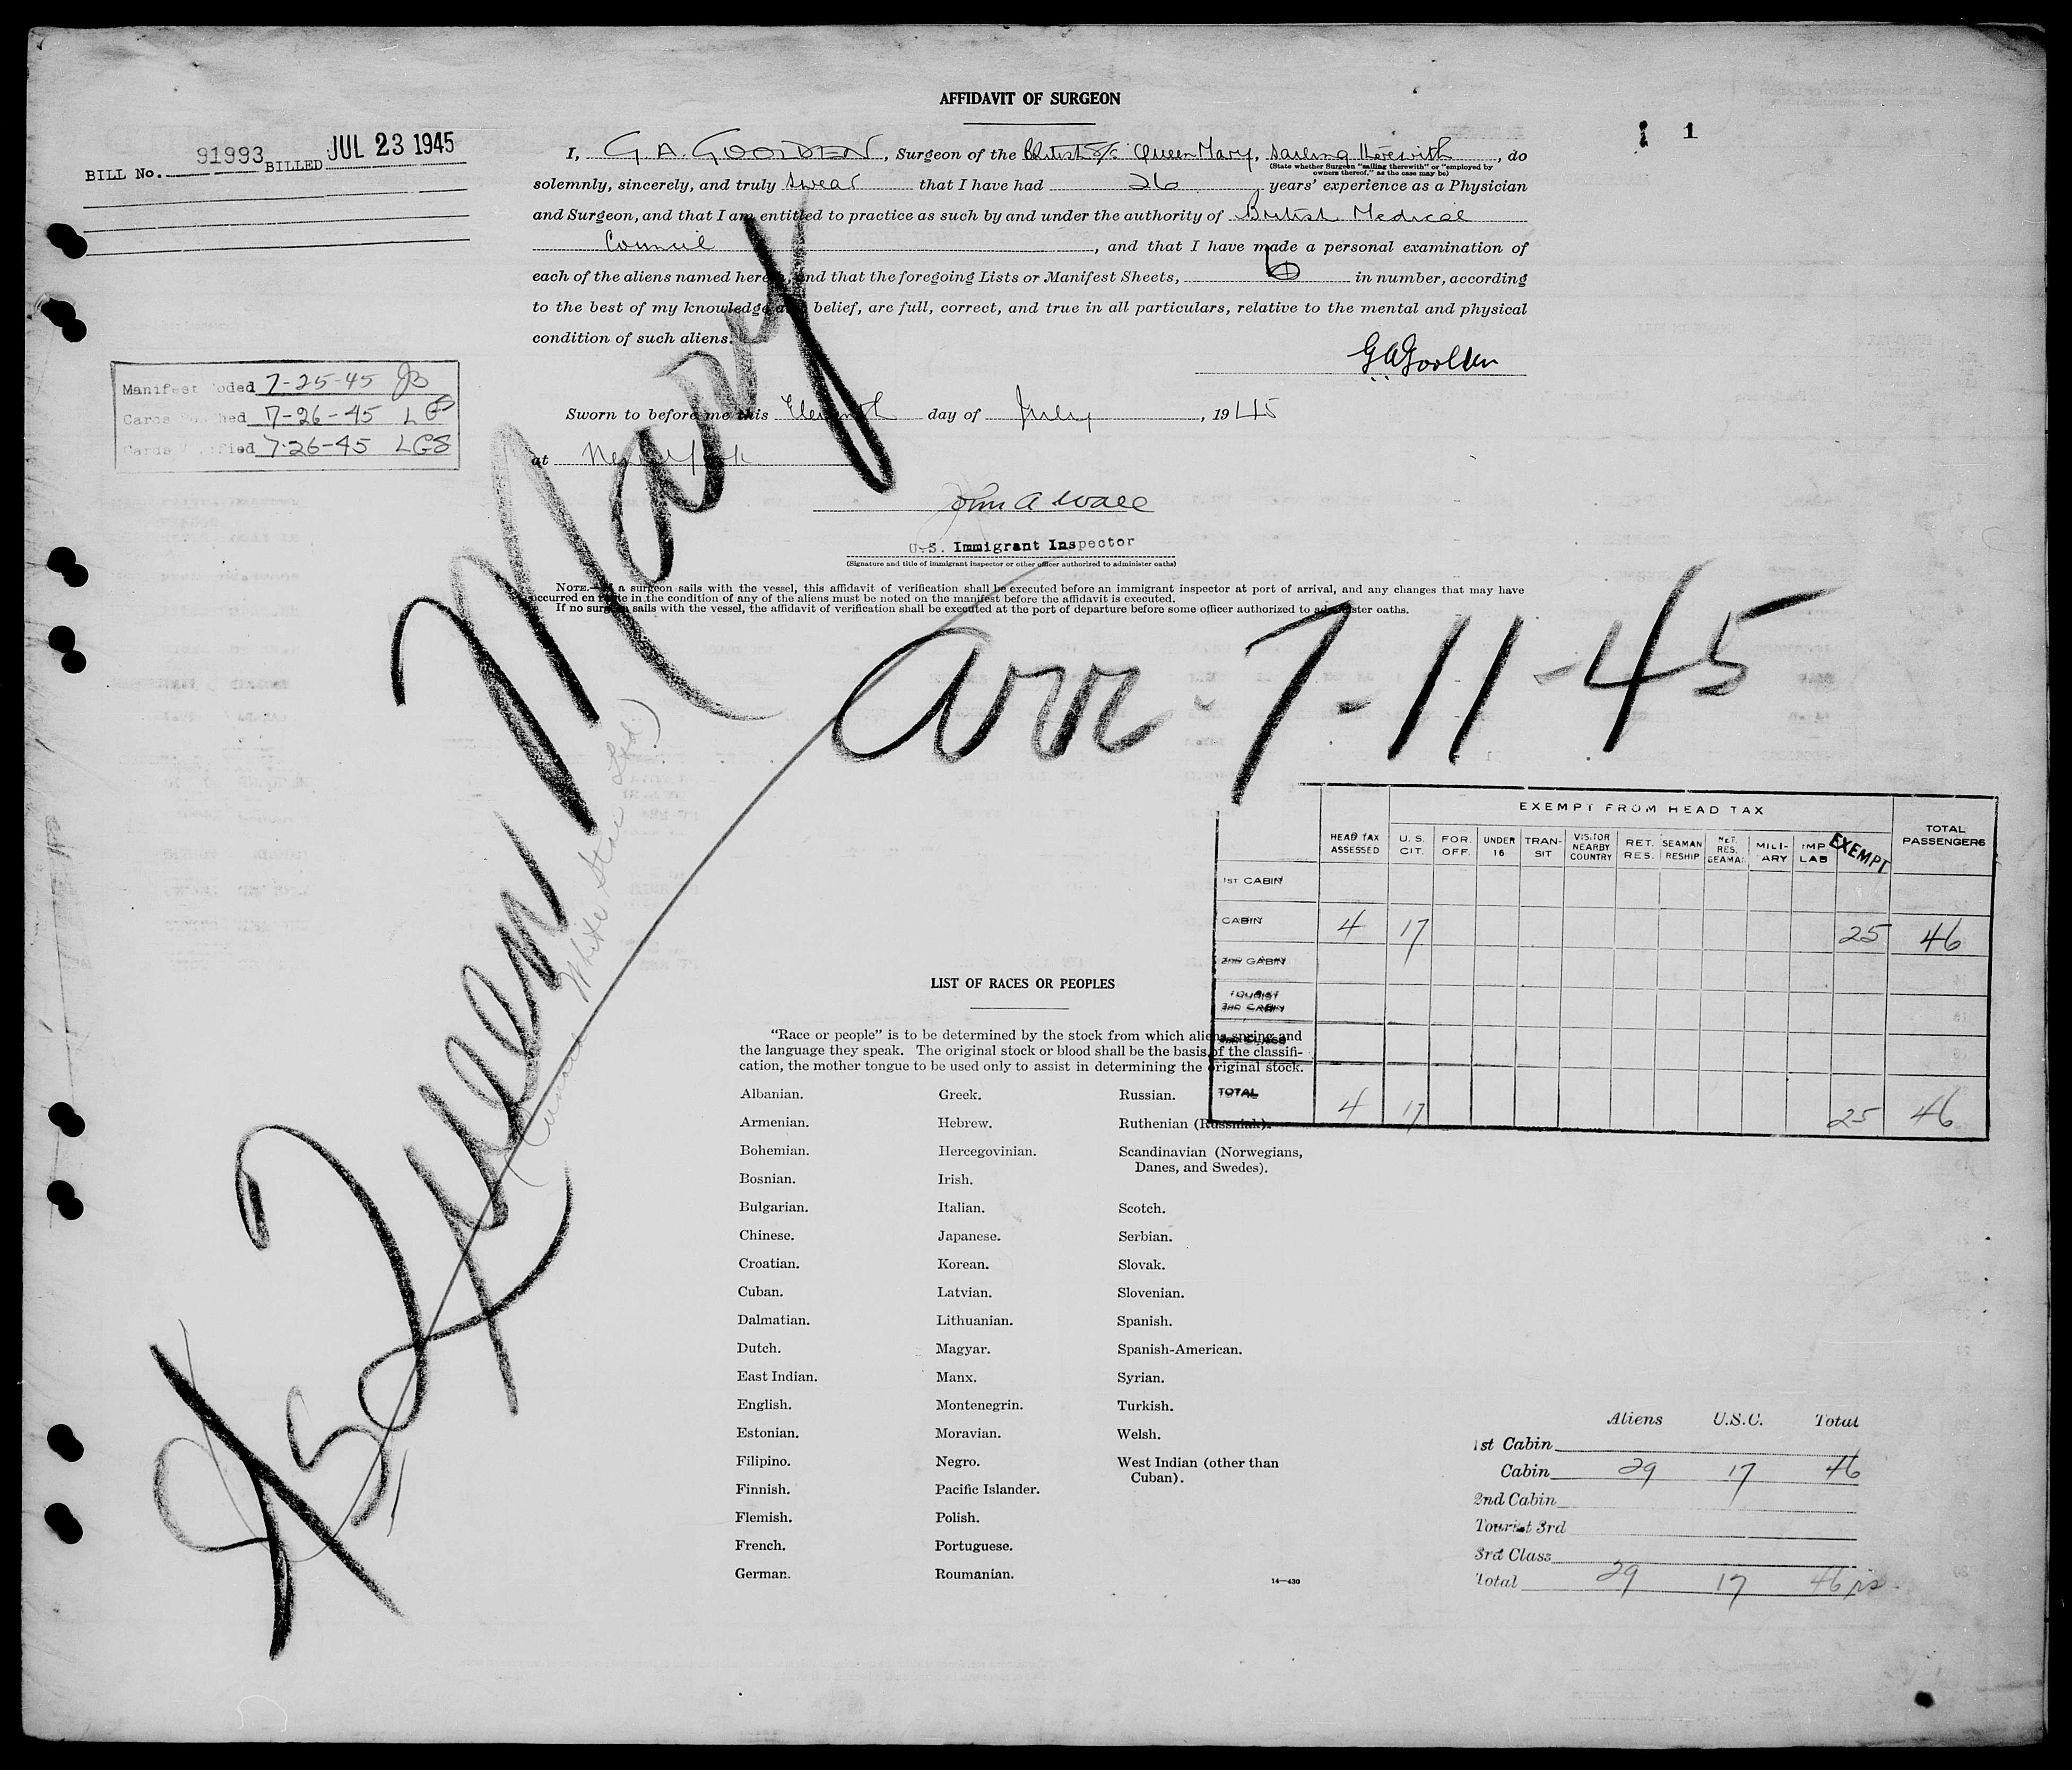 AFFIDAVIT OF SURGEON
1
BILL No. 91993 BILLED JUL 23 1945
I, G. A. GOOLDEN, Surgeon of the British S/S Queen Mary, sailing therewith, do
(State whether Surgeon "sailing therewith" or "employed by
owners thereof," as the case may be)
solemnly, sincerely, and truly swear that I have had 26 years' experience as a Physician
and Surgeon, and that I am entitled to practice as such by and under the authority of British Medical
Council, and that I have made a personal examination of
each of the aliens named herein, and that the foregoing Lists or Manifest Sheets, 6 in number, according
to the best of my knowledge and belief, are full, correct, and true in all particulars, relative to the mental and physical
condition of such aliens.
GAGoolden
Manifest coded 7-25-45 JB
Cards Punched 7-26-45 LGS
Cards Verified 7-26-45 LGS
Sworn to before me this Eleventh day of July, 1945
at New York
John A Wall
U.S. Immigrant Inspector
(Signature and title of immigrant inspector or other officer authorized to administer oaths)
NOTE.—If a surgeon sails with the vessel, this affidavit of verification shall be executed before an immigrant inspector at port of arrival, and any changes that may have
occurred en route in the condition of any of the aliens must be noted on the manifest before the affidavit is executed.
If no surgeon sails with the vessel, the affidavit of verification shall be executed at the port of departure before some officer authorized to administer oaths.
SS Queen Mary
(Cunard White Star Ltd.)
arr. 7-11-45
EXEMPT FROM HEAD TAX
HEAD TAX ASSESSED U.S. CIT. FOR. OFF. UNDER 16 TRAN-SIT VISITOR NEARBY COUNTRY RET. RES. SEAMAN RESHIP RET. RES. SEAMAN MILI-ARY IMP LAB EXEMPT TOTAL PASSENGERS
1ST CABIN
CABIN 4 17 25 46
2ND CABIN
TOURIST
3RD CABIN
TOTAL 4 17 25 46
LIST OF RACES OR PEOPLES
"Race or people" is to be determined by the stock from which aliens spring and
the language they speak. The original stock or blood shall be the basis of the classifi-
cation, the mother tongue to be used only to assist in determining the original stock.
Albanian. Greek. Russian.
Armenian. Hebrew. Ruthenian (Russniak).
Bohemian. Hercegovinian. Scandinavian (Norwegians,
Danes, and Swedes).
Bosnian. Irish.
Bulgarian. Italian. Scotch.
Chinese. Japanese. Serbian.
Croatian. Korean. Slovak.
Cuban. Latvian. Slovenian.
Dalmatian. Lithuanian. Spanish.
Dutch. Magyar. Spanish-American.
East Indian. Manx. Syrian.
English. Montenegrin. Turkish.
Estonian. Moravian. Welsh.
Filipino. Negro. West Indian (other than
Cuban).
Finnish. Pacific Islander.
Flemish. Polish.
French. Portuguese.
German. Roumanian.
14—430
Aliens U.S.C. Total
1st Cabin
Cabin 29 17 46
2nd Cabin
Tourist 3rd
3rd Class
Total 29 17 46